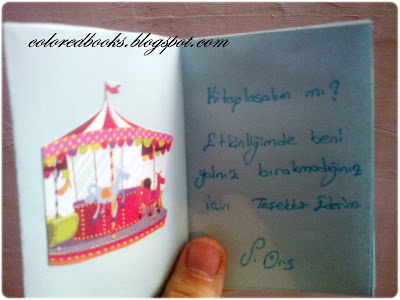 coloredbooks.blogspot.com
Kitaplaşalım mı?
Etkinliğimde beni
yalnız bırakmadığınız
için Teşekkür Ederim
S. Örs